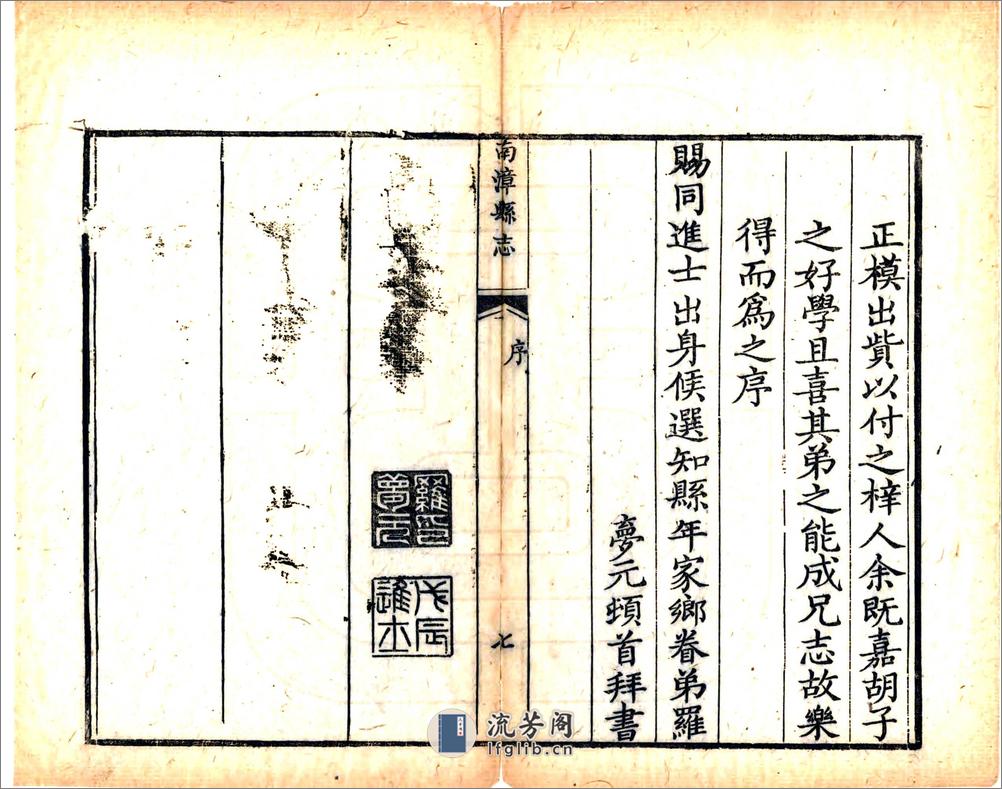 正模出貲以付之梓人余既嘉胡子
之好學且喜其弟之能成兄志故樂
得而爲之序
賜同進士出身候選知縣年家鄉眷弟羅
夢元頓首拜書
南漳縣志
序
七
羅印
夢元
戊辰
進士
流芳阁
lfglib.cn